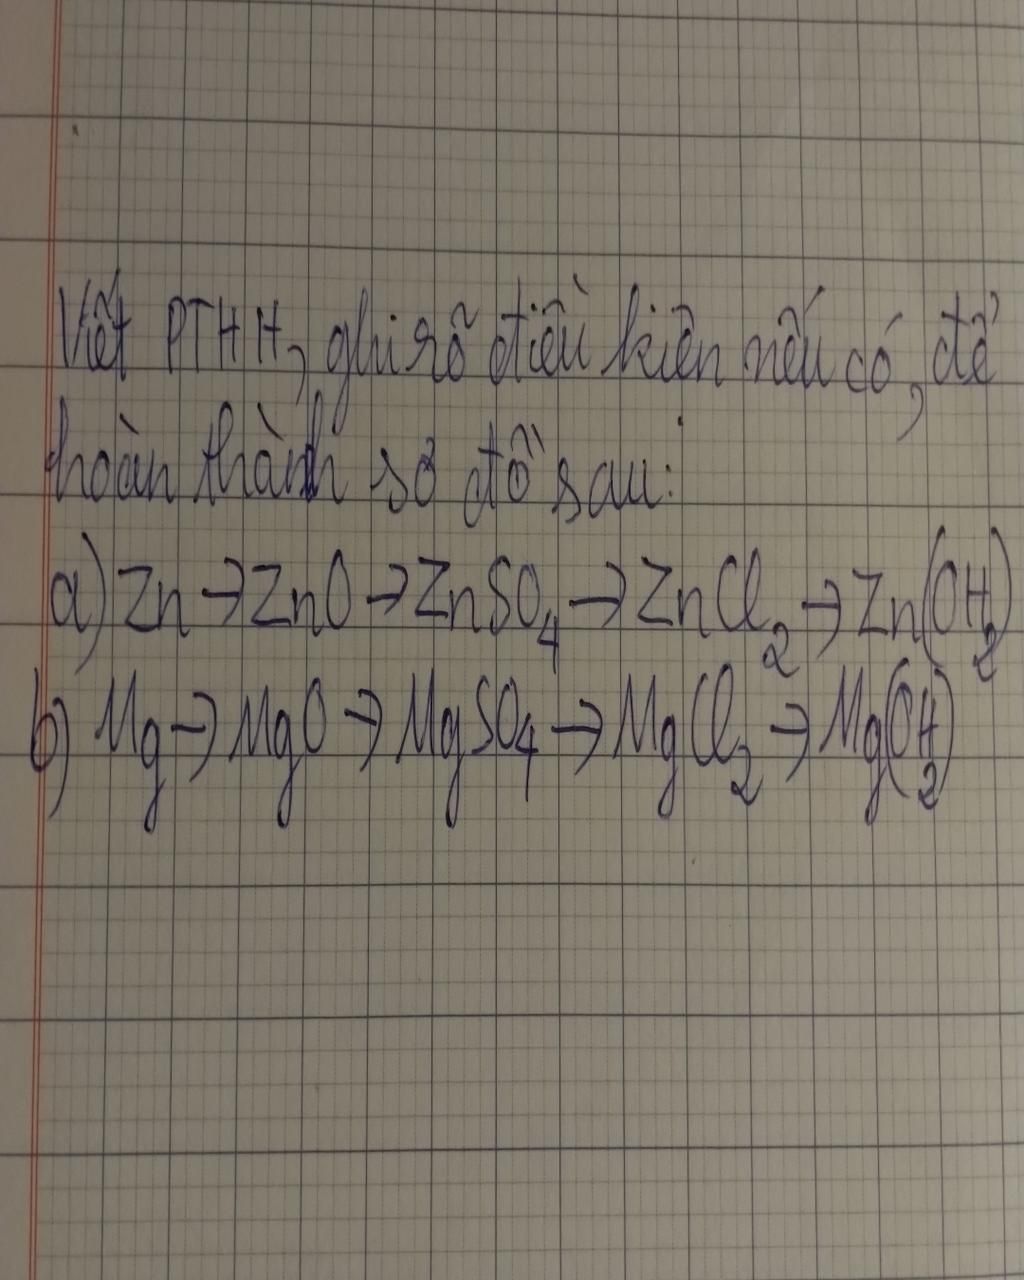 Viết PTHH, ghi rõ điều kiện nếu có, để
hoàn thành sơ đồ sau:
a) Zn → ZnO → ZnSO₄ → ZnCl₂ → Zn(OH)₂
b) Mg → MgO → MgSO₄ → MgCl₂ → Mg(OH)₂